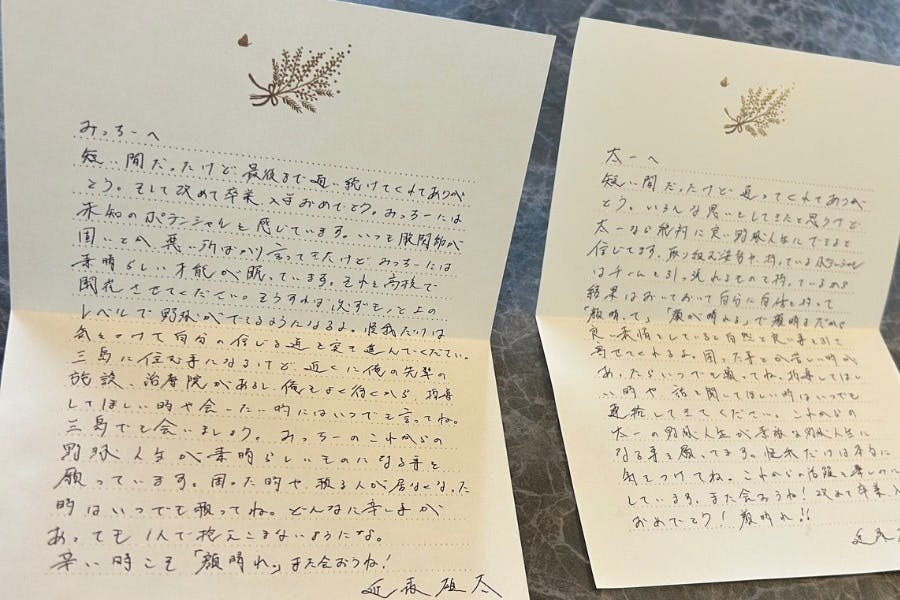 みっちーへ
短い間だったけど最後まで通い続けてくれてありが
とう。そして改めて卒業、入学おめでとう。みっちーには
未知のポテンシャルを感じています。いつも股関節が
固いとか、悪い所ばかり言ってきたけど、みっちーには
素晴らしい才能が眠っています。それを高校で
開花させてください。そうすれば必ずもっと上の
レベルで野球ができるようになるよ。怪我だけは
気をつけて自分の信じる道を突き進んでください。
三島に住む事になるけど、近くに俺の先輩の
施設、治療院があるし、俺もよく行くから、指導
してほしい時や会いたい時にはいつでも言ってね。
三島でも会いましょう。みっちーのこれからの
野球人生が素晴らしいものになる事を
願っています。困った時や、頼る人が居なくなった
時はいつでも頼ってね。どんなに辛い事が
あっても1人で抱えこまないようにな。
辛い時こそ「顔晴れ」また会おうね!
太一へ
短い間だったけど通ってくれてありが
とう。いろんな思いをしてきたと思うけど
太一なら絶対に良い野球人生にできると
信じてます。取り組む姿勢や、持っているポテンシャル
結果はおいておいて自分に自信を持って
「顔晴って」「顔が晴れる」で顔晴るだから
良い表情をしていると自然と良い事を引き
寄せてくれるよ。困った事とか苦しい時が
あったらいつでも頼ってね。指導してほし
い時や、話を聞いてほしい時はいつでも
連絡してきてください。これからの
太一の野球人生が素敵な野球人生に
なる事を願ってます。怪我だけは本当に
気をつけてね。これからの活躍を楽しみに
しています。また会おうね!改めて卒業、入
おめでとう!顔晴れ!!